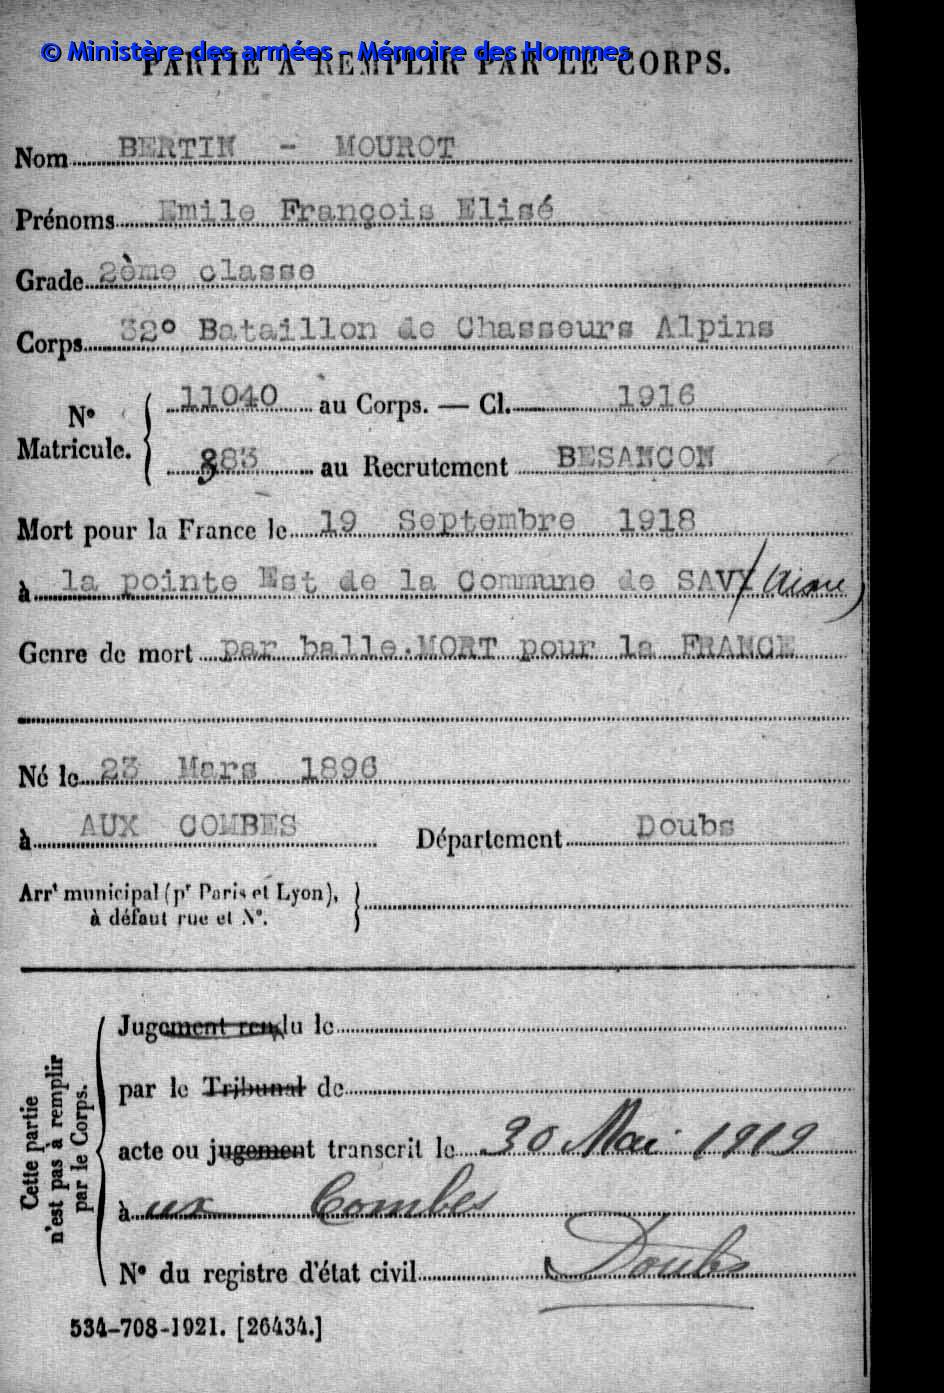 © Ministère des armées - Mémoire des Hommes
PARTIE À REMPLIR PAR LE CORPS.
Nom BERTIN - MOUROT
Prénoms Emile François Elisé
Grade 2ème classe
Corps 32º Bataillon de Chasseurs Alpins
Nº Matricule. 11040 au Corps. — Cl. 1916
883 au Recrutement BESANCON
Mort pour la France le 19 Septembre 1918
à la pointe Est de la Commune de SAVY (Aisne)
Genre de mort par balle.MORT pour la FRANCE
Né le 23 Mars 1896
à AUX COMBES Département Doubs
Arrt municipal (pr Paris et Lyon),
à défaut rue et Nº.
Cette partie
n'est pas à remplir
par le Corps.
Jugement rendu le
par le Tribunal de
acte ou jugement transcrit le 30 Mai 1919
à ux Combes
Nº du registre d'état civil Doubs
534-708-1921. [26434.]